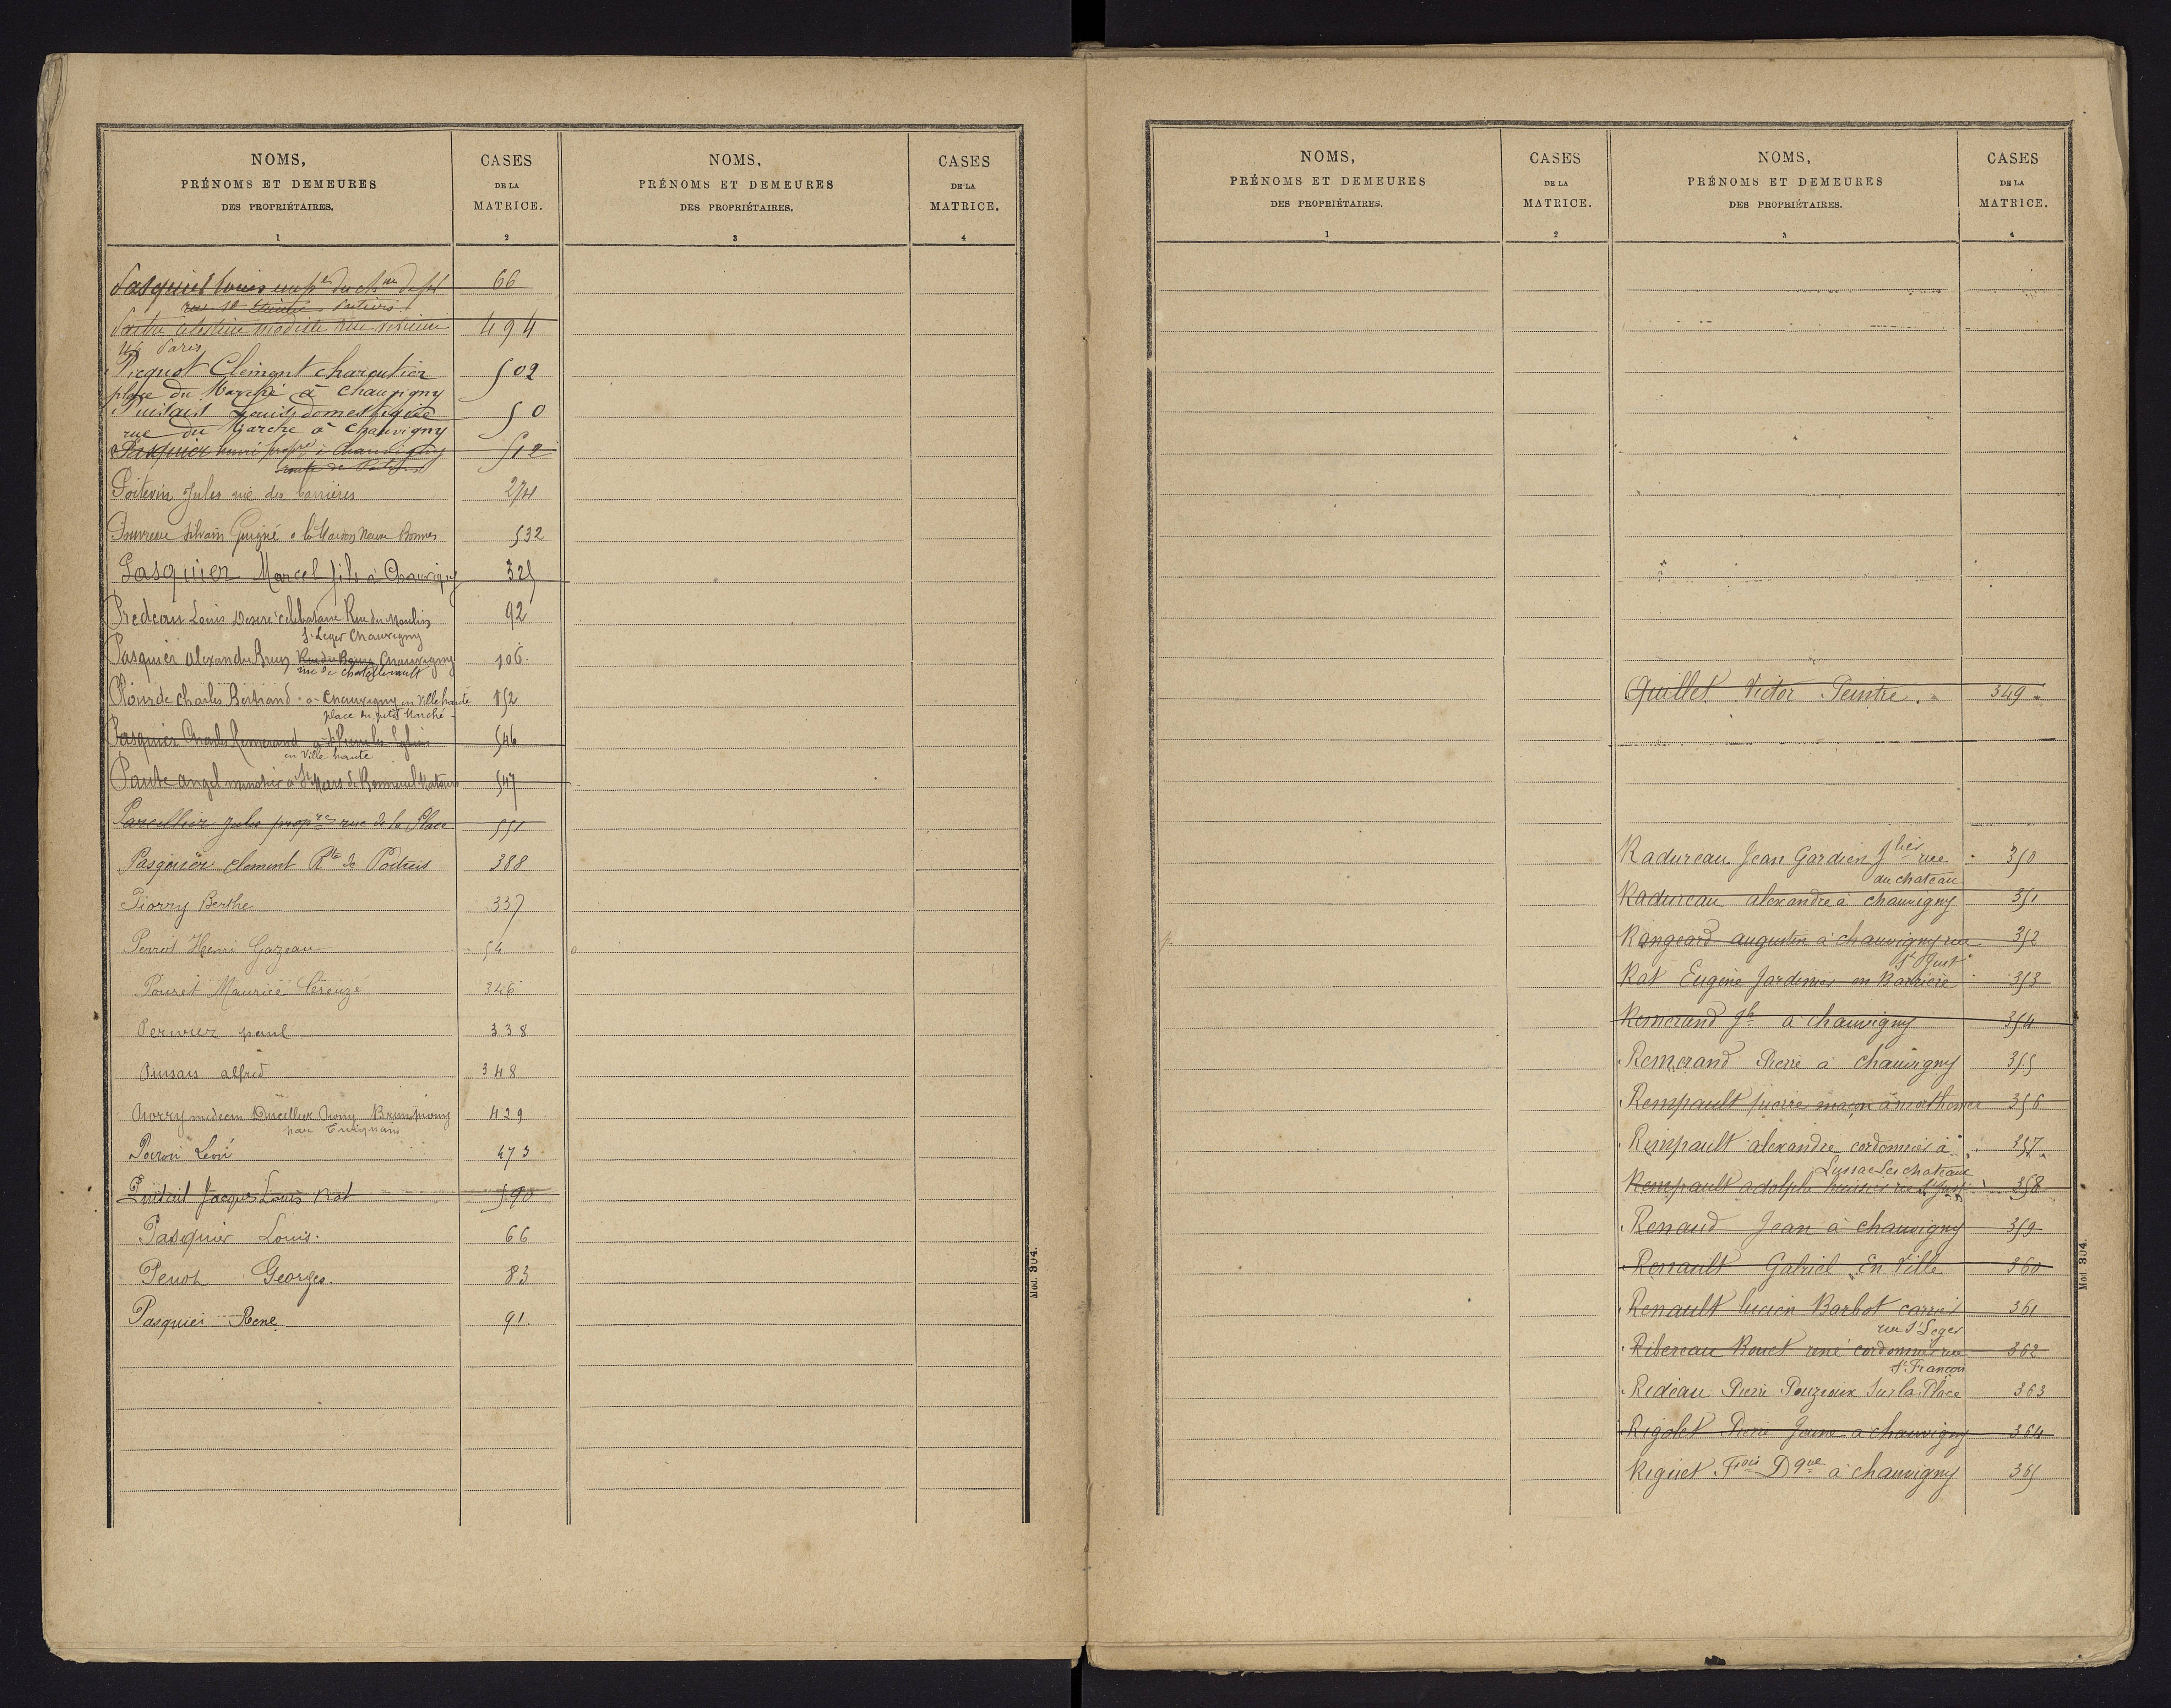 NOMS,
PRÉNOMS ET DEMEURES
DES PROPRIÉTAIRES.
1
CASES
DE LA
MATRICE.
2
NOMS,
PRÉNOMS ET DEMEURES
DES PROPRIÉTAIRES.
3
CASES
DE LA
MATRICE.
4
Pasquier Louis 66
494
Paris
Picquot Clement charcutier 502
place du Marché à Chauvigny
Louis domestique 50
rue du Marche à Chauvigny
Pasquier henri propre à Chauvigny 512
route de
Poitevin Jules rue des barrières 274
Pouvreau Silvain Guigné a la Maison Neuve Bonnes 532
Pasquier Marcel fils à Chauvigny 325
Predeau Louis Desire celibataire Rue du Moulin 92
St Leger Chauvigny
Pasquier Alexandre Brun Chauvigny 106
rue de Chatellerault
Plourde Charles Bertrand a Chauvigny en Ville haute 152
place du petit Marché
Pasquier Charles Remerand à St Pierre les Eglises 546
en Ville haute
Paute angel à 547
Jules propre rue de la Place 551
Pasquier clement Rte de Poitiers 388
Piorry Berthe 337
Perrot Henri Gazeau 54
Pouret Maurice Creuzé 346
Perivier paul 338
alfred 348
Piorry medecin 429
par
Poiron Léon 473
Puitail Jacques Louis Rat 590
Pasquier Louis. 66
Penot Georges. 83
Pasquier Rene 91.
Mod. 304.
NOMS,
PRÉNOMS ET DEMEURES
DES PROPRIÉTAIRES.
1
CASES
DE LA
MATRICE.
2
NOMS,
PRÉNOMS ET DEMEURES
DES PROPRIÉTAIRES.
3
CASES
DE LA
MATRICE.
4
Quillet Victor Peintre. 349
Radureau Jean Gardien rue 350
du chateau
Radureau alexandre à chauvigny 351
Rangeard augustin à chauvigny rue 352
St Just
Rat Eugene Jardinier en Barriere 353
Remerand Jh à chauvigny 354
Remerand Pierre à chauvigny 355
Rempault pierre maçon à morthemer 356
Rempault alexandre cordonnier à 357
Lussac Les chateaux
Rempault adolphe huissier rue St Just 358
Renaud Jean à chauvigny 359
Renault Gabriel En Ville 360
Renault lucien Barbot carrier 361
rue St Leger
Ribereau Rouet réné cordonnier rue 362
St Francois
Rideau Pierre Pouzioux Sur la Place 363
Rigolet Pierre Jaune a chauvigny 364
Riguet Fois Dque à chauvigny 365
Mod. 304.